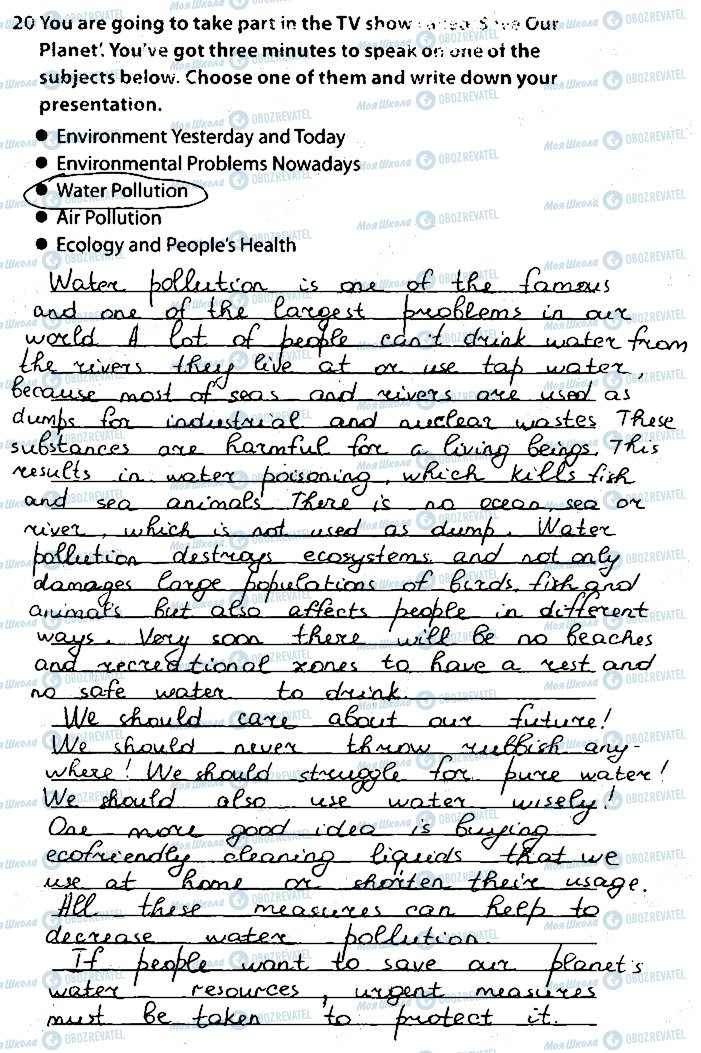 20 You are going to take part in the TV show called 'Save Our
Planet'. You've got three minutes to speak on one of the
subjects below. Choose one of them and write down your
presentation.
● Environment Yesterday and Today
● Environmental Problems Nowadays
● Water Pollution
● Air Pollution
● Ecology and People's Health
Water pollution is one of the famous
and one of the largest problems in our
world. A lot of people can't drink water from
the rivers they live at or use tap water,
because most of seas and rivers are used as
dumps for industrial and nuclear wastes These
substances are harmful for a living beings. This
results in water poisoning, which kills fish
and sea animals There is no ocean, sea or
river, which is not used as dump. Water
pollution destroys ecosystems and not only
damages large populations of birds, fish and
animals but also affects people in different
ways. Very soon there will be no beaches
and recreational zones to have a rest and
no safe water to drink.
We should care about our future!
We should never throw rubbish any-
where! We should struggle for pure water!
We should also use water wisely!
One more good idea is buying
ecofriendly cleaning liquids that we
use at home or shorten their usage.
All these measures can help to
decrease water pollution.
If people want to save our planet's
water resources, urgent measures
must be taken to protect it.